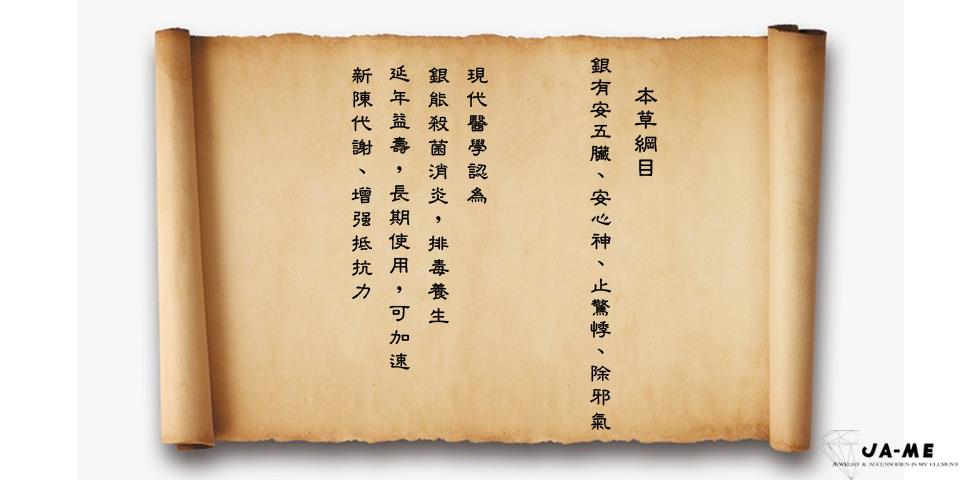 本草綱目
銀有安五臟、安心神、止驚悸、除邪氣
現代醫學認為
銀能殺菌消炎，排毒養生
延年益壽，長期使用，可加速
新陳代謝、增強抵抗力
JA-ME
JEWELRY & ACCESSORIES IS MY ELEMENT